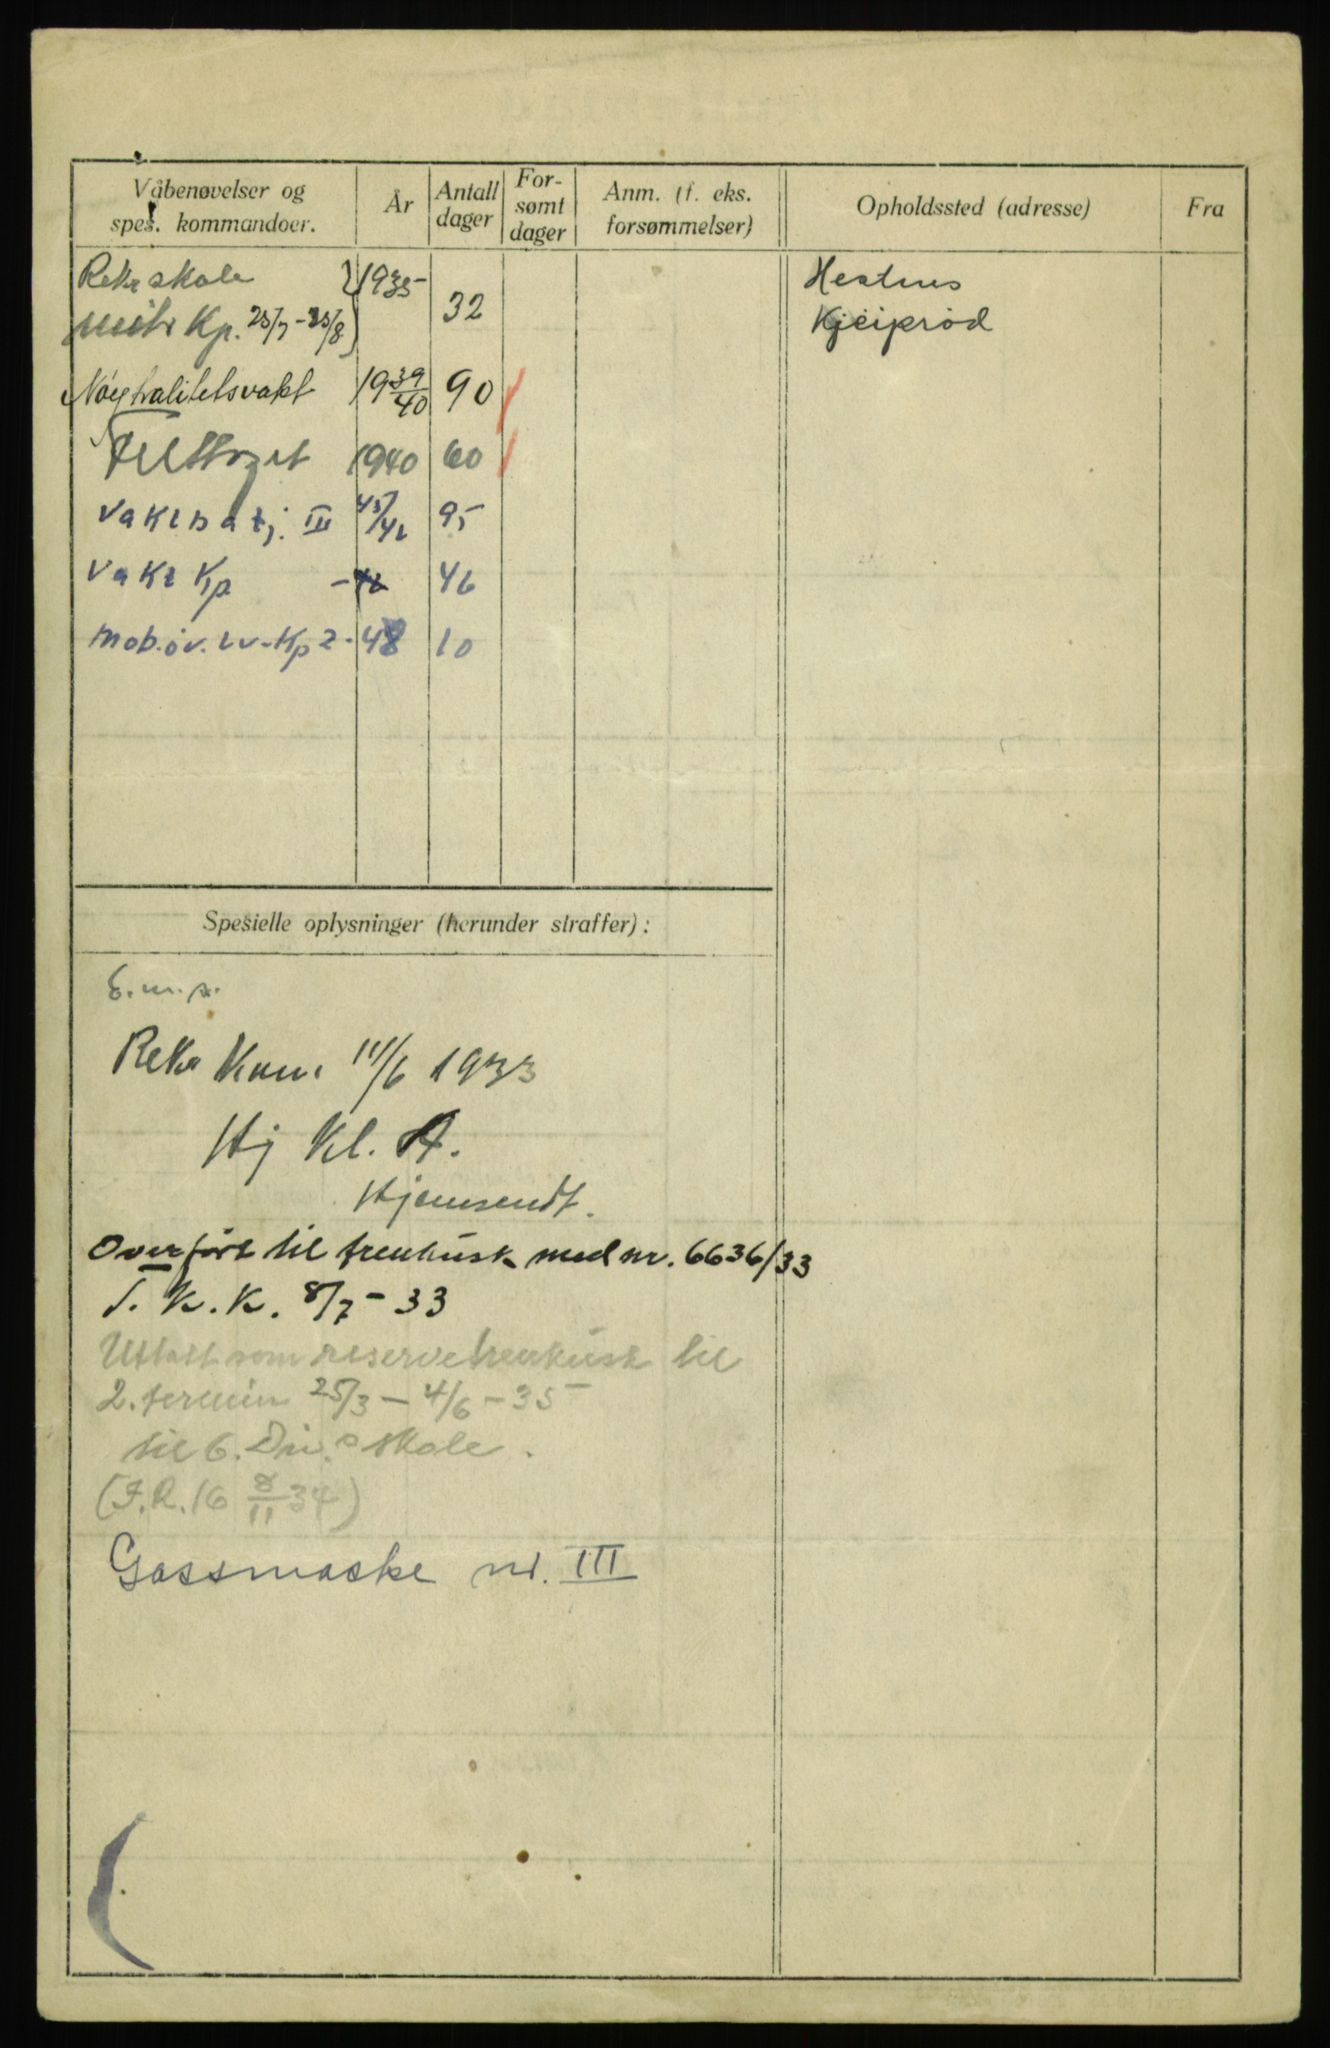 Våbenøvelser og
spes. kommandoer.
År
Antall
dager
For-
sømt
dager
Anm. (f. eks.
forsømmelser)
Opholdssted (adresse)
Fra
Rekr skole 1935
Mitr Kp. 25/7-25/8 32
Nøytralitetsvakt 1939/40 90
Felttoget 1940 60
Vaktbatj. III 45/46 95
Vakt Kp -46 46
Mob.øv. Lv-Kp 2-48 10
Hestnes
Kjeiprød
Spesielle oplysninger (herunder straffer):
E.m.s.
Rekr Kom. 11/6 1933
Hj Kl. A.
Hjemsendt.
Overført til trenkusk med nr. 6636/33
T. K. K. 8/7-33
Uttatt som reservetrenkusk til
2. termin 25/3-4/6-35
til 6. Div.s skole.
(I.R. 16 8/11 34)
Gassmaske nr. III